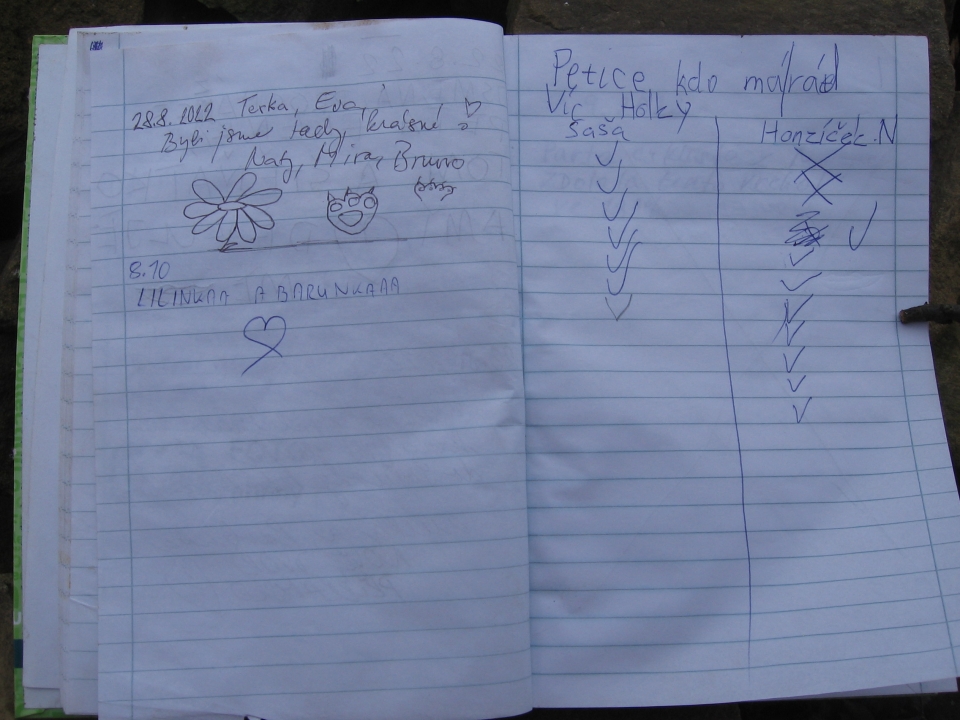 28.8. 2022 Terka, Eva,
Byli jsme tady, krásné
Naty, Míra, Bruno
8.10
LILINKAA A BARUNKAAA
Petice kdo má rád
Víc Holky
Saša
Honzíček.N